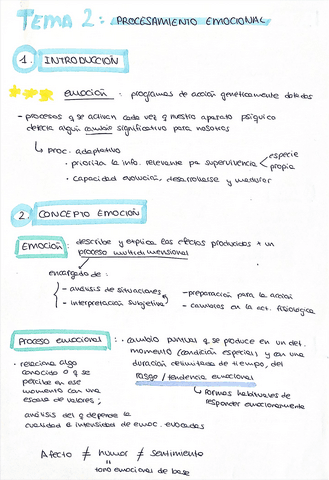 TEMA 2: PROCESAMIENTO EMOCIONAL
1. INTRODUCCIÓN
emoción : programas de acción genéticamente dotados
- procesos q se activan cada vez q nuestro aparato psíquico
detecta algún cambio significativo para nosotros
↳ proc. adaptativo
· prioriza la info. relevante pa supervivencia < especie
propia
· capacidad evolución, desarrollarse y madurar
2. CONCEPTO EMOCIÓN
EMOCIÓN : describe y explica los efectos producidos x un
proceso multidimensional
encargado de :
- análisis de situaciones
- interpretación subjetiva
- preparación para la acción
- cambios en la act. fisiológica
Proceso emocional : · cambio puntual q se produce en un det.
momento (condición especial) y con una
duración delimitada de tiempo, del
rasgo/tendencia emocional
↳ formas habituales de
responder emocionalmente
· relaciona algo
conocido o q se
percibe en ese
momento con una
escala de valores ;
análisis del q depende la
cualidad e intensidad de emoc. evocadas
Afecto ≠ humor ≠ sentimiento
tono emocional de base